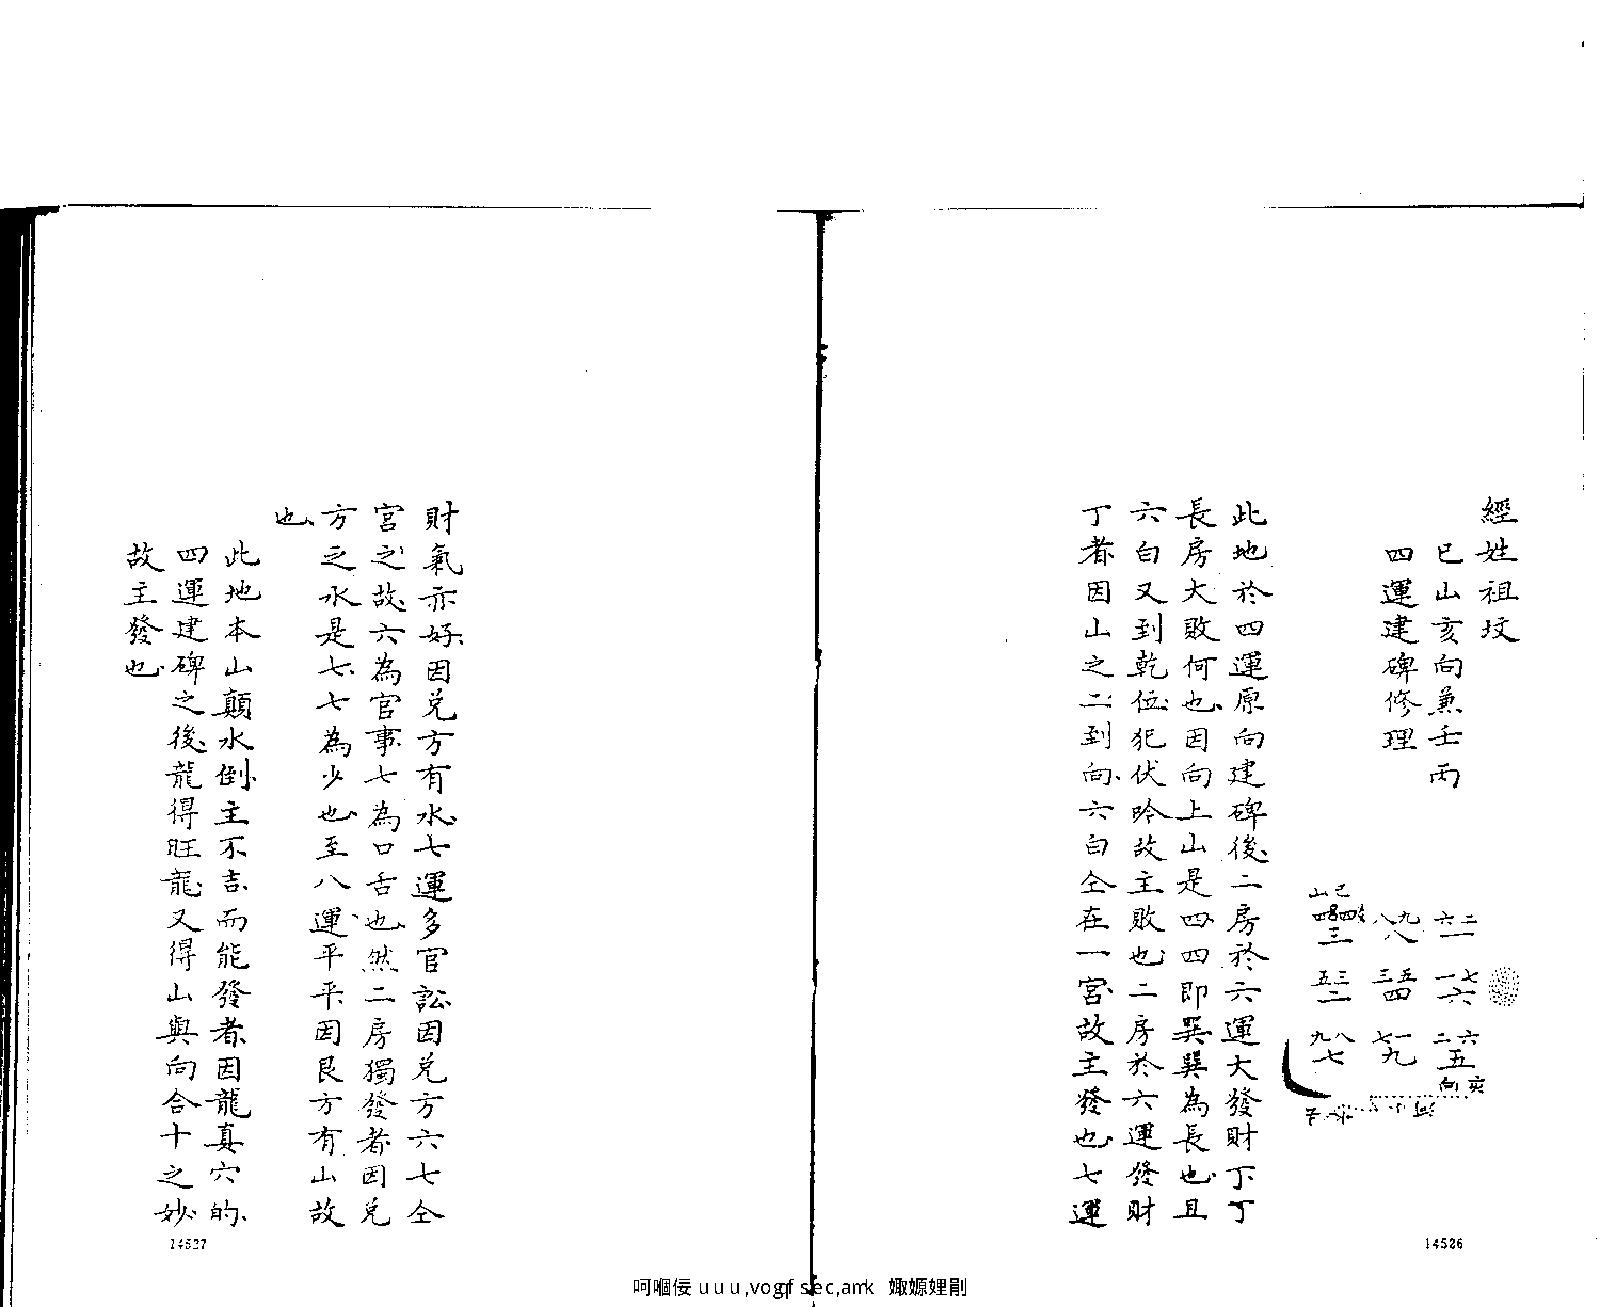 經姓祖坟
巳山亥向兼壬丙
四運建碑修理
巳山
四四三
八九八
六二一
五三二
三五四
一七六
九八七
七一九
二六五
亥向
此地於四運原向建碑後二房於六運大發財丁丁
長房大敗何也因向上山是四四即巽巽為長也且
六白又到乾位犯伏吟故主敗也二房於六運發財
丁者因山之二到向六白仝在一宮故主發也七運
14526
財氣亦好因兌方有水七運多官訟因兌方六七仝
宮之故六為官事七為口舌也然二房獨發者因兌
方之水是七七為少也至八運平平因艮方有山故
也
此地本山顛水倒主不吉而能發者因龍真穴的
四運建碑之後龍得旺龍又得山與向合十之妙
故主發也
14527
呵嗰佞 uuu,vogf sec,amk 娵嫄娌剛